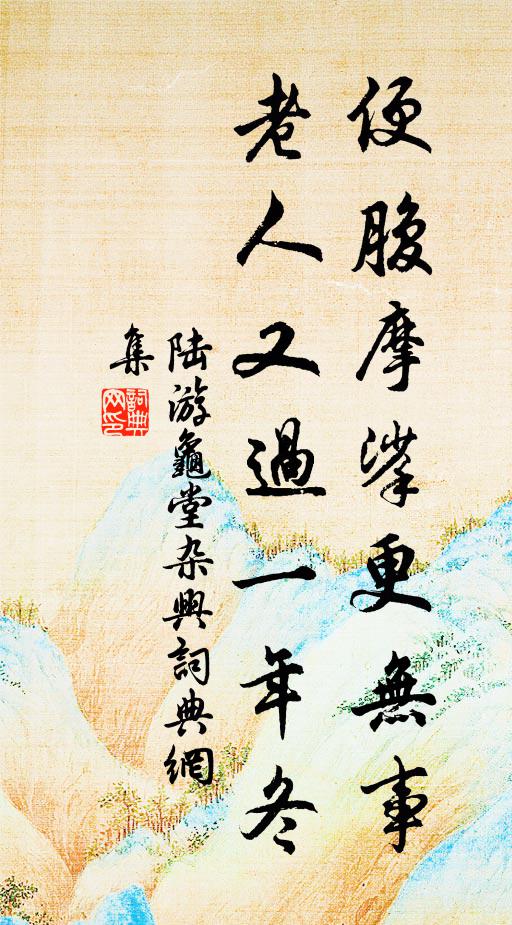 便腹摩挲更無事
老人又過一年冬
陆游龜堂杂興詞典網
集
詞典
网印